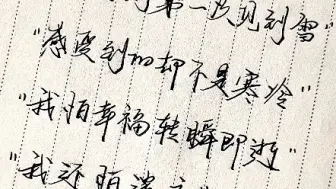 第一次见到雪"
"感受到的却不是寒冷"
"我怕幸福转瞬即逝"
"我还怕